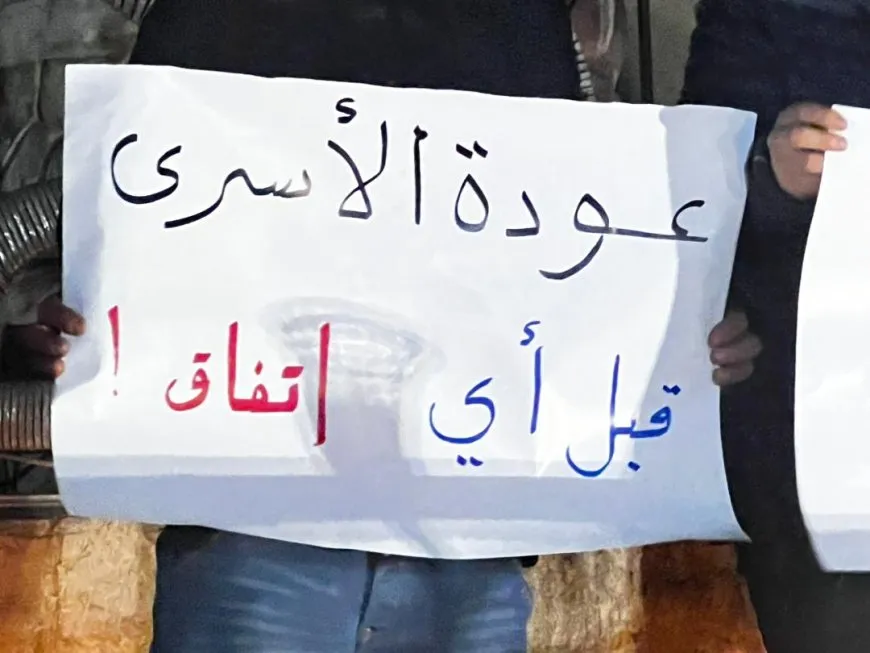 عودة الأسرى
قبل أي اتفاق !